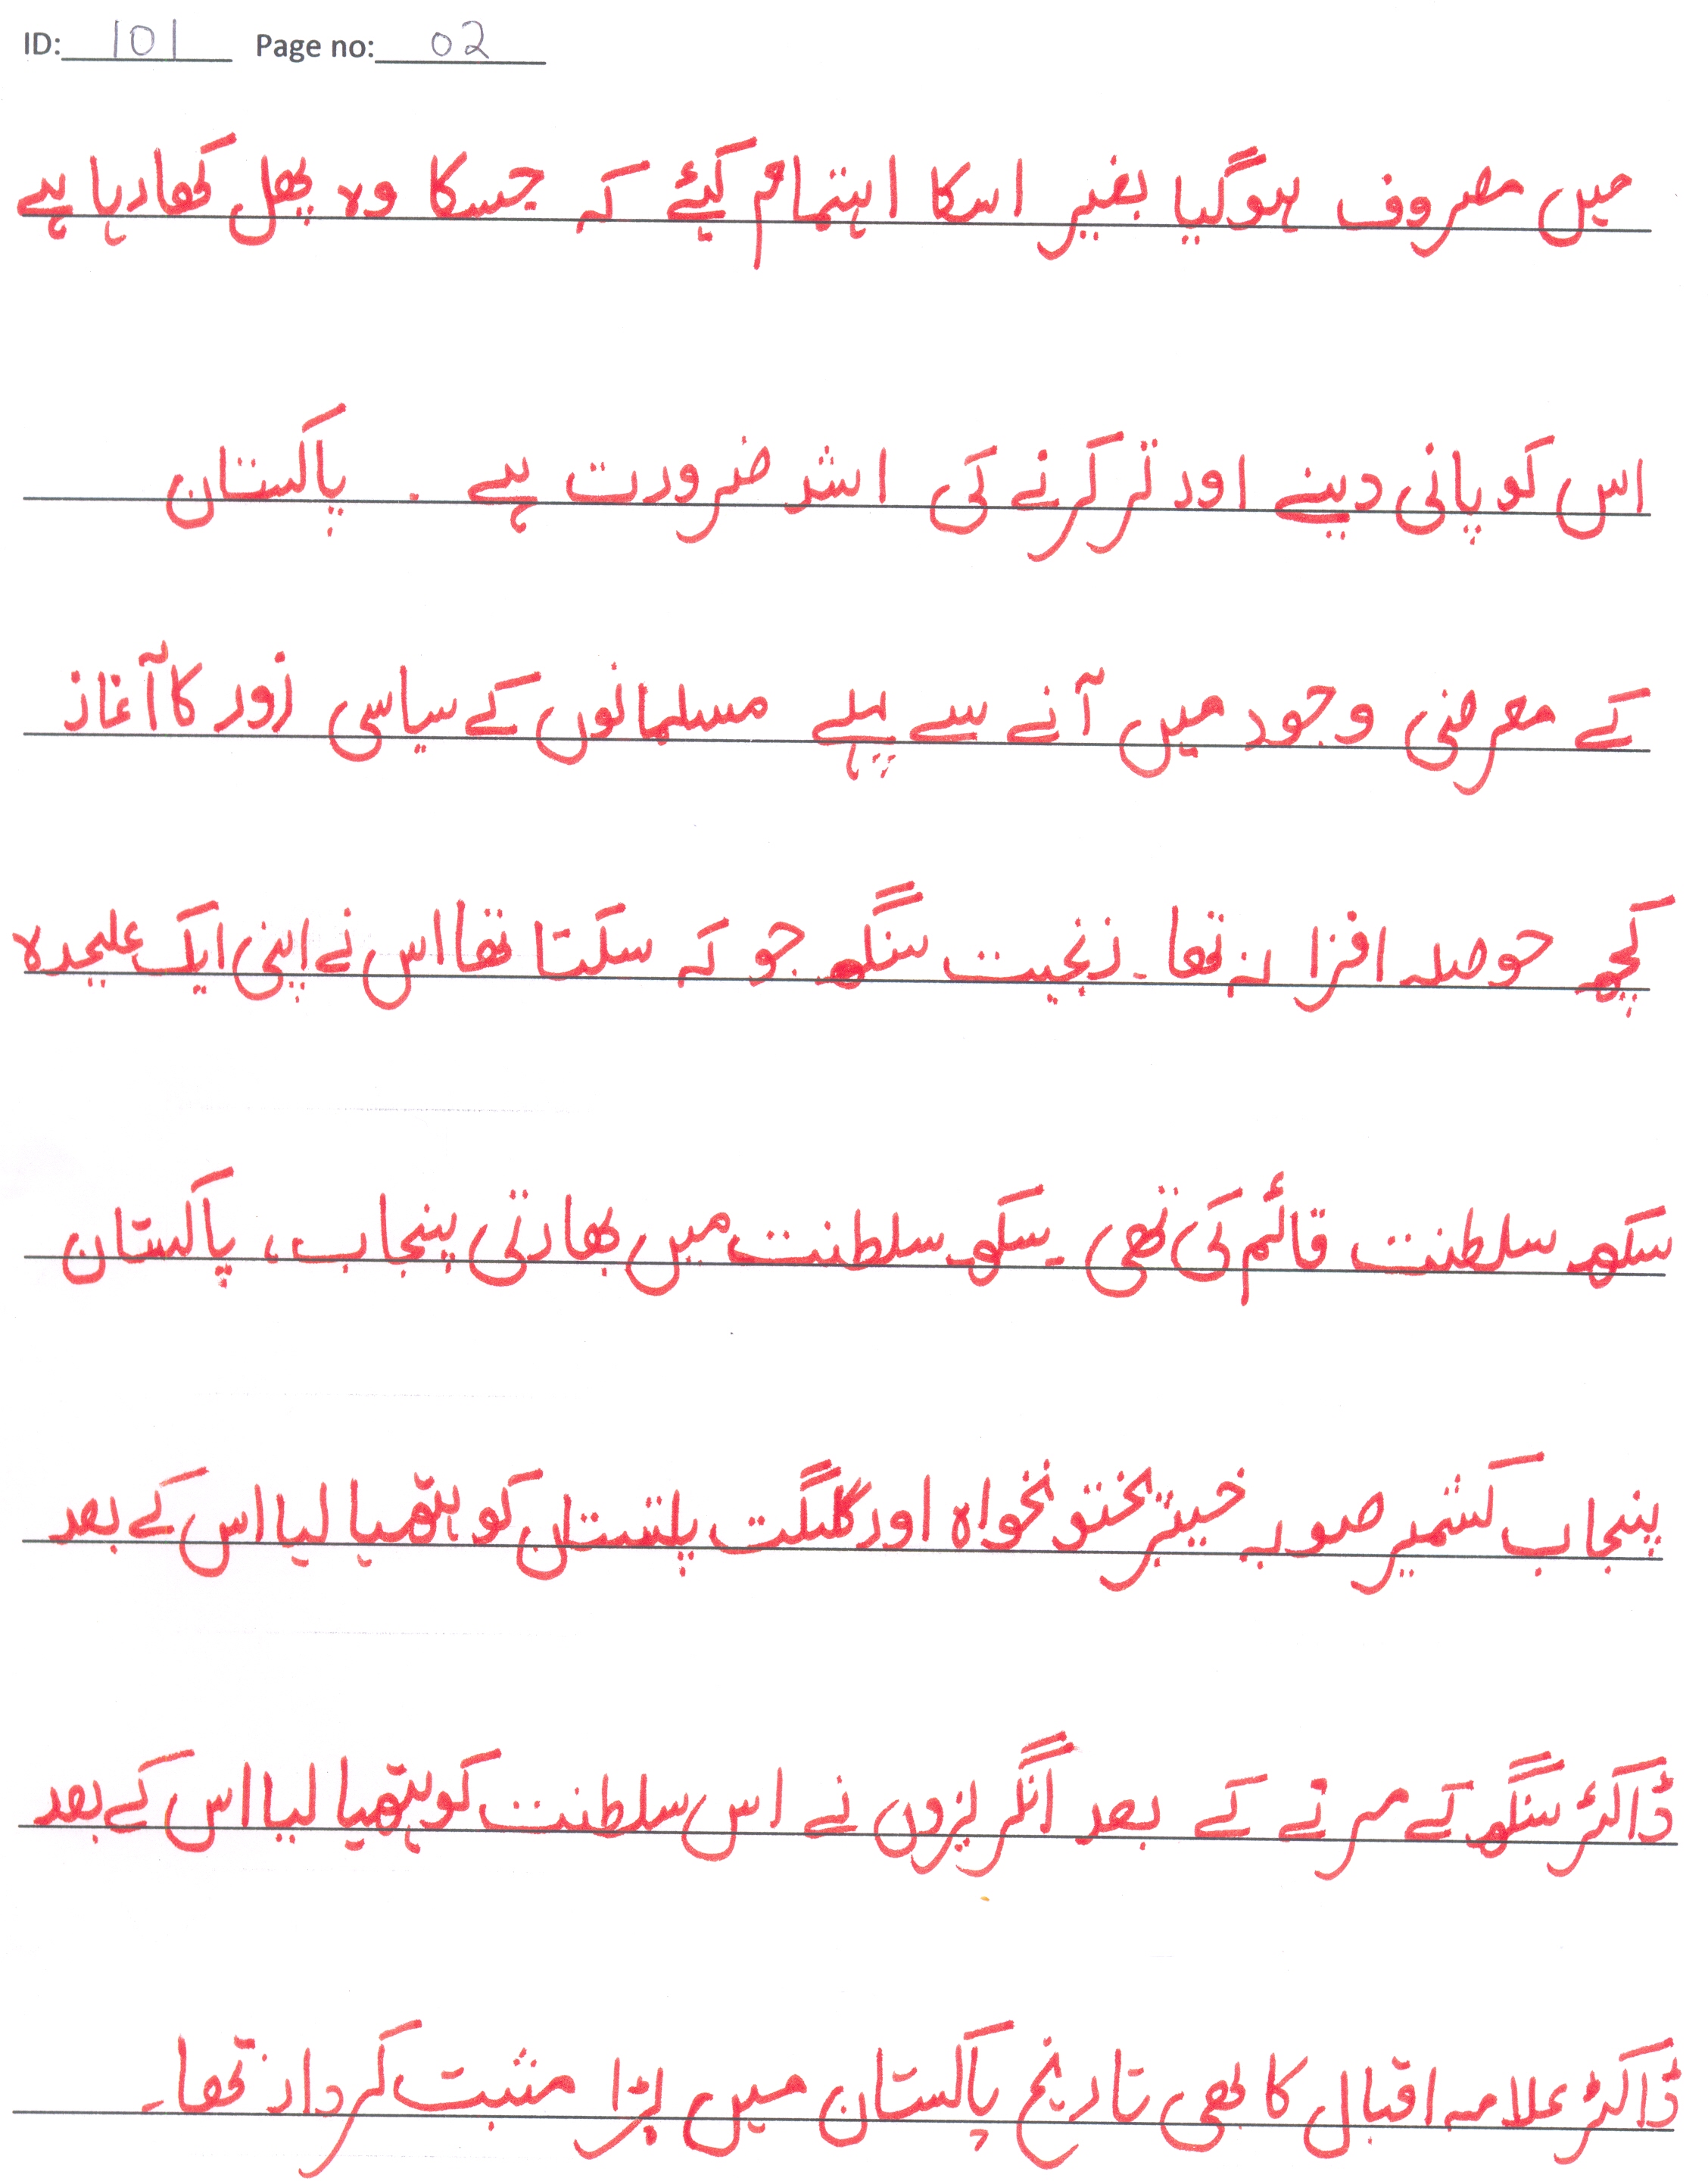 ID: 101 Page no: 02
میں مصروف ہوگیا بغیر اسکا اہتمام کیئے کہ جسکا وہ پھل کھا رہا ہے
اس کو پانی دینے اور تر کرنے کی اشد ضرورت ہے . پاکستان
کے معرضی وجود میں آنے سے پہلے مسلمانوں کے سیاسی زور کا آغاز
کچھ حوصلہ افزا نہ تھا۔ رنجیت سنگھ جو کہ سکتا تھا اس نے اپنی ایک علیحدہ
سکھ سلطنت قائم کی تھی۔ سکھ سلطنت میں بھارتی پنجاب، پاکستان
پنجاب کشمیر صوبہ خیبر پختونخواہ اور گلگت بلتستان کو ہتھیا لیا اس کے بعد
ڈاکٹر سنگھ کے مرنے کے بعد انگریزوں نے اس سلطنت کو ہتھیا لیا اس کے بعد
ڈاکٹر علامہ اقبال کا بھی تاریخ پاکستان میں بڑا مثبت کردار تھا۔